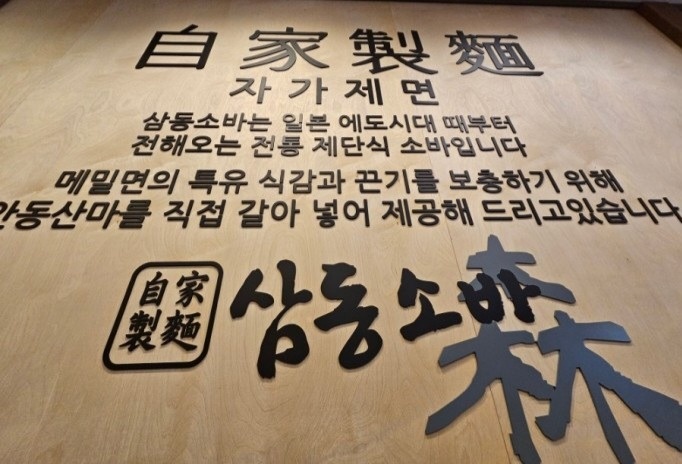 自家製麵
자가제면
삼동소바는 일본 에도시대 때부터
전해오는 전통 제단식 소바입니다
메밀면의 특유 식감과 끈기를 보충하기 위해
안동산마를 직접 갈아 넣어 제공해 드리고있습니다
自家
製麵
삼동소바
森